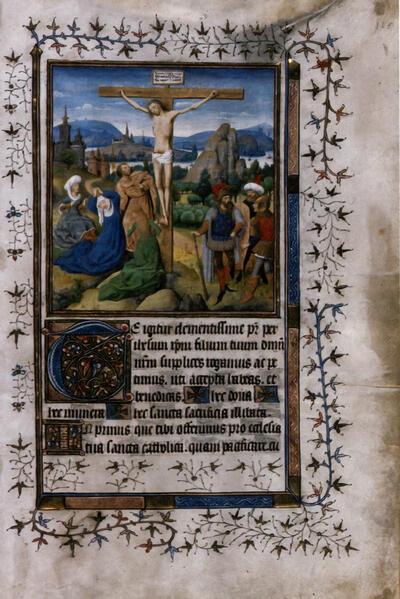 Te igitur clementissime pr per
ihesum xpm filium tuum dnm
nrm supplices rogamus ac pe
timus. uti accepta habeas. et
benedicas. hec dona
hec munera hec sancta sacrificia illibata
In primis que tibi offerimus pro ecclesia
tua sancta catholica. quam pacificare cu